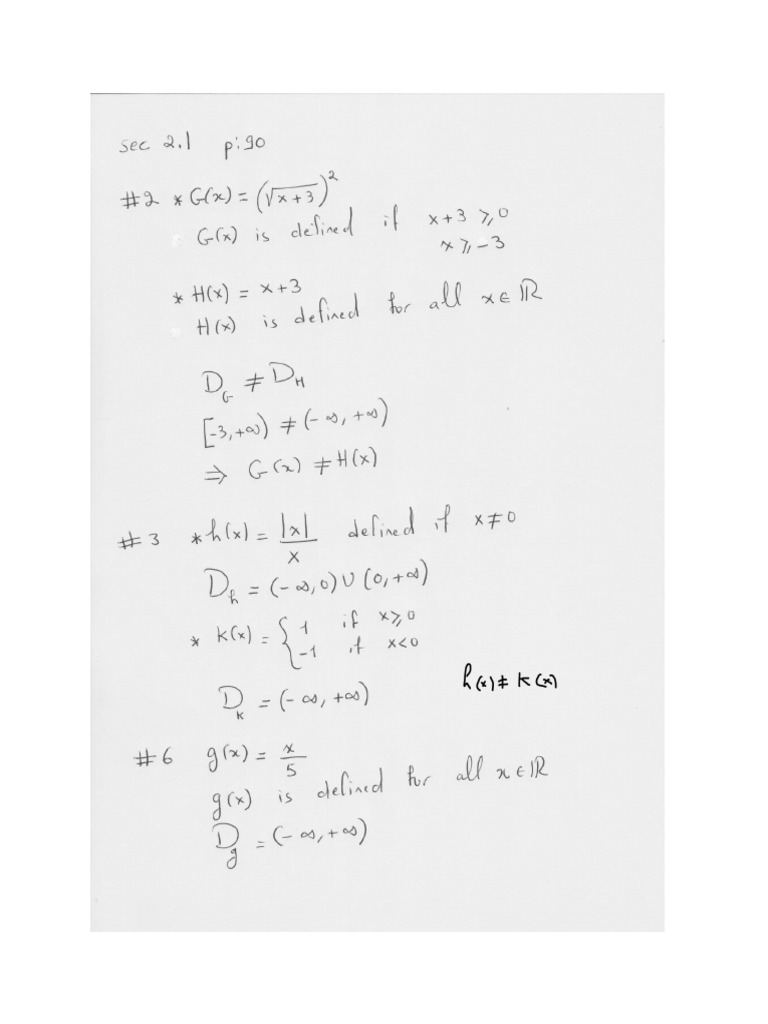 sec 2.1 p:90
#2 * G(x) = (√x+3)²
G(x) is defined if x+3 ⩾ 0
x ⩾ -3
* H(x) = x+3
H(x) is defined for all x ∈ ℝ
D_G ≠ D_H
[-3,+∞) ≠ (-∞, +∞)
⇒ G(x) ≠ H(x)
#3 * h(x) = |x|/x defined if x ≠ 0
D_h = (-∞,0) ∪ (0,+∞)
* k(x) = { 1 if x ⩾ 0
-1 if x<0
D_k = (-∞, +∞)
h(x) ≠ k(x)
#6 g(x) = x/5
g(x) is defined for all x ∈ ℝ
D_g = (-∞,+∞)